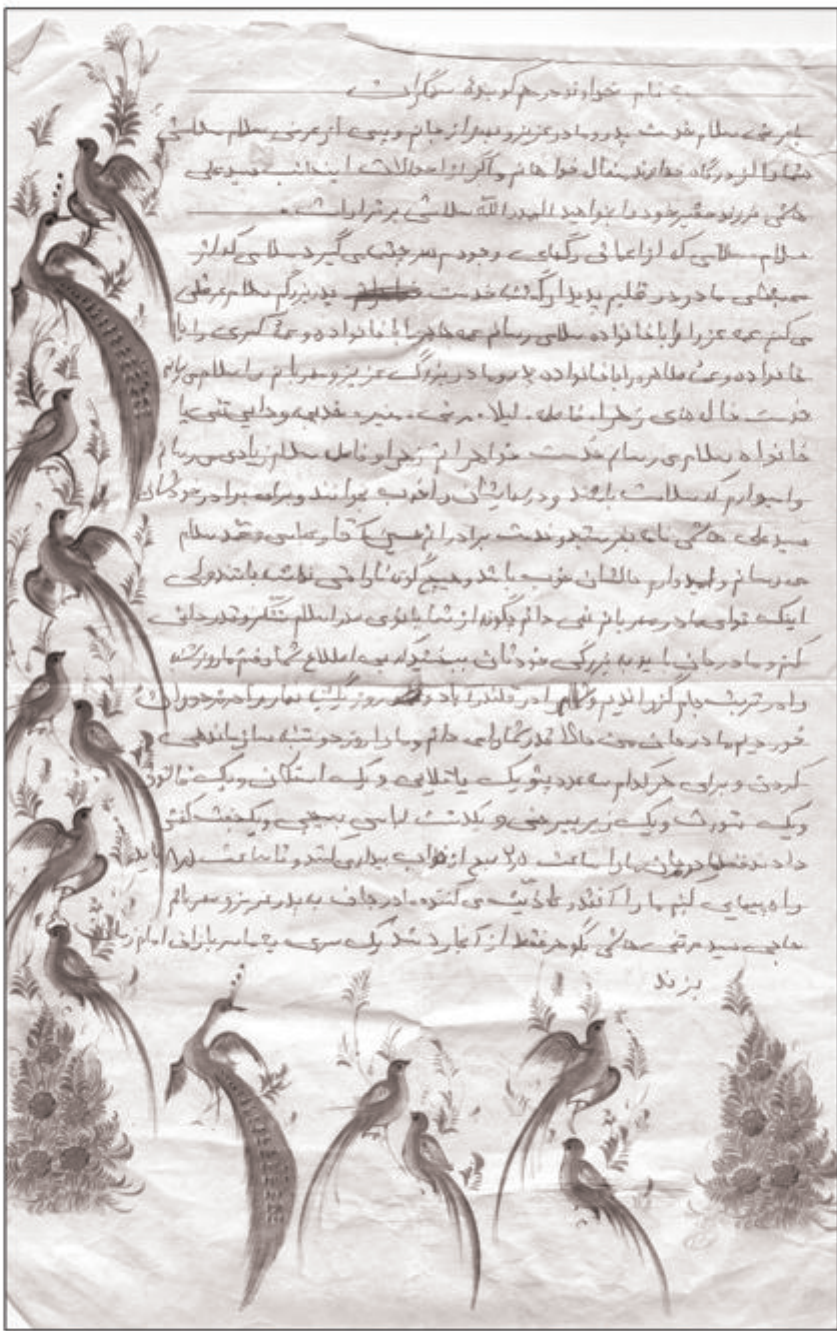 به نام خداوند درهم کوبندهٔ ستمگران
با عرض سلام خدمت پدر و مادر عزیزم بعد از جانم و پس از عرض سلام سلامتی
شما را از درگاه خداوند متعال خواهانم و اگر از احوالات اینجانب سید علی
هاشمی فرزند حقیر خود را بخواهید الحمدالله سلامتی برقرار است
سلام سلامی که از اعماق رگهای وجودم سرچشمه می گیرد سلامی که از
محبتهای مادر در قلبم پدیدار گشت خدمت پدربزرگم سلام عرض
می کنم عمه عزرا را با خانواده سلام می رسانم عمه هاجر را با خانواده و عمهٔ کبری را با
خانواده و عمهٔ طاهره را با خانواده پدر و مادر بزرگ عزیز و مهربانم را سلام می رسانم
خدمت خاله های زهرا، فاطمه، لیلا، مرضیه، منیره، قدیمه و دایی تقی با
خانواده سلام می رسانم خدمت خواهرانم زهرا و فاطمه سلام زیادی می رسانم
و امیدوارم که سلامت باشند و درسهایشان را خوب بخوانند و برای برادر خودشان
سید علی هاشمی نامه بفرستید و خدمت برادرانم حسین آقا و عباس و محمد سلام
می رسانم و امیدوارم حالشان خوب باشد و هیچ گونه ناراحتی نداشته باشند ولی
اینک توای مادر مهربانم نمی دانم چگونه از شما بانوی صدر اسلام تشکر و قدردانی
کنم و مادر جان باید به بزرگی خودتان ببخشید که بی اطلاع شما رفتم ما روز شنبه
را در تربت جام گذراندیم و شام را در قلندرآباد و روز یکشنبه ناهار را در بجنوردان
خوردیم مادر جان من حالا قدر شما را می دانم و ما را روز دوشنبه سازماندهی
کردن و برای هر کدام سه عدد پتو یک یاتلاین و یک استکان و یک قاشق
و یک شورت و یک زیرپیرهنی و یکدست لباس بسیجی و یک جفت کفش
دادند مادر جان ما را ساعت ۲/۵ صبح از خواب بیدار می کنند و تا ساعت ۸/۵ باید
راه پیمایی کنیم ما را آنقدر اذیت می کنند مادر جان به پدر عزیز و مهربانم
حاجی سید مرتضی هاشمی بگو هر فقط از آنجا رد شد یک سری به ما سربازان امام زمان
بزند